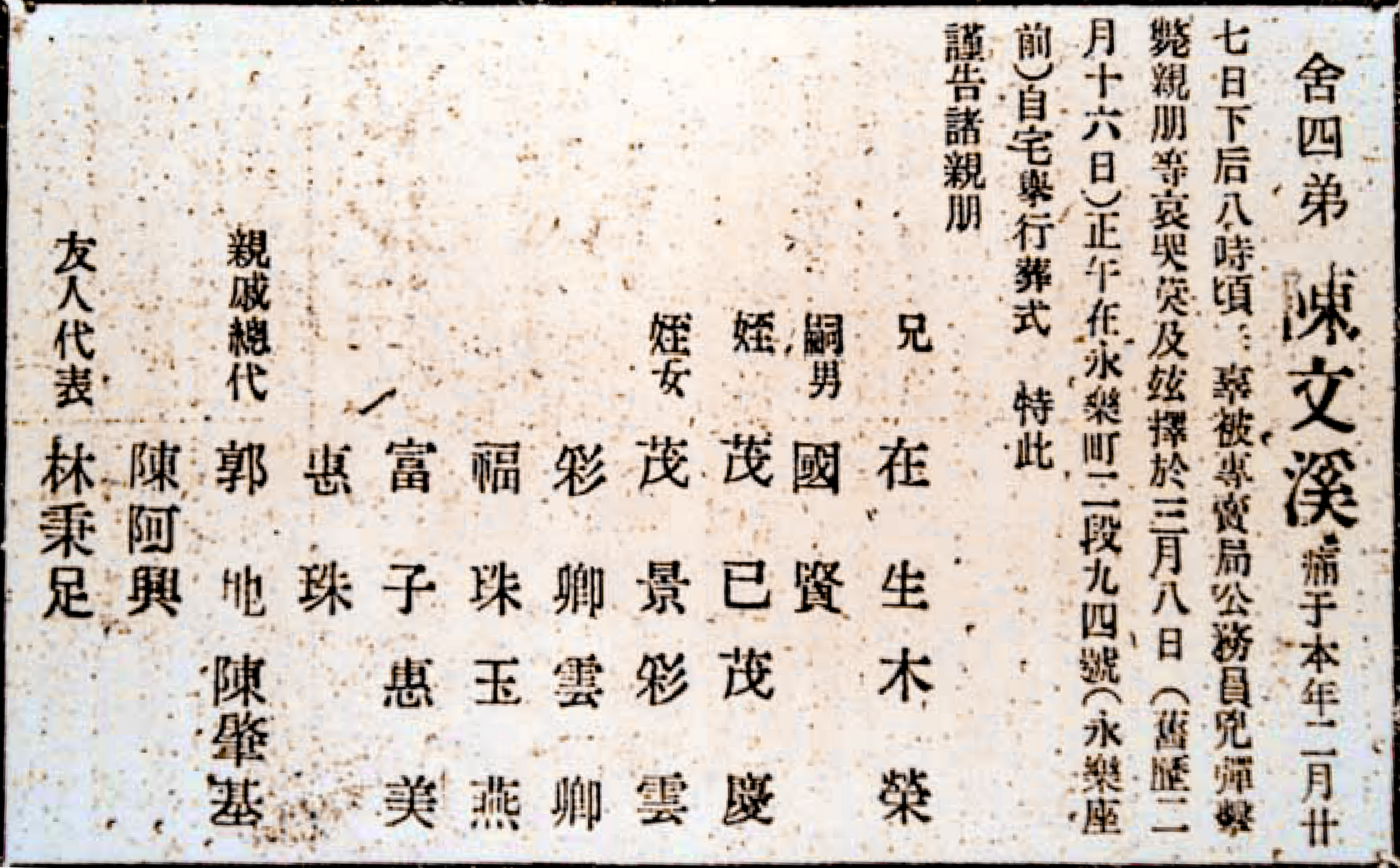 舍四弟 陳文溪 痛于本年二月廿
七日下后八時頃 辜被專賣局公務員兇彈擊
斃親朋等哀哭莫及玆擇於三月八日（舊歷二
月十六日）正午在永樂町二段九四號（永樂座
前）自宅舉行葬式 特此
謹告諸親朋
兄 在生 木榮
嗣男 國賢
姪 茂已 茂慶
姪女 茂景 彩雲
彩卿 雲卿
福珠 玉燕
富子 惠美
惠珠
親戚總代 郭地 陳肇基
陳阿興
友人代表 林秉足